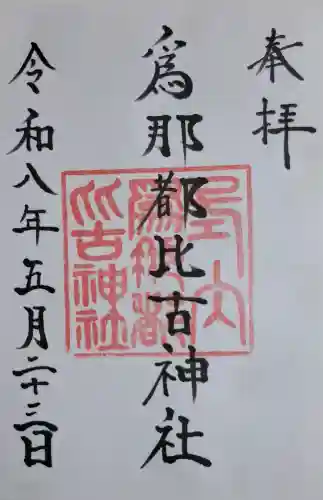 奉拝
爲那都比古神社
令和八年五月二十三日
爲那都
比古神社